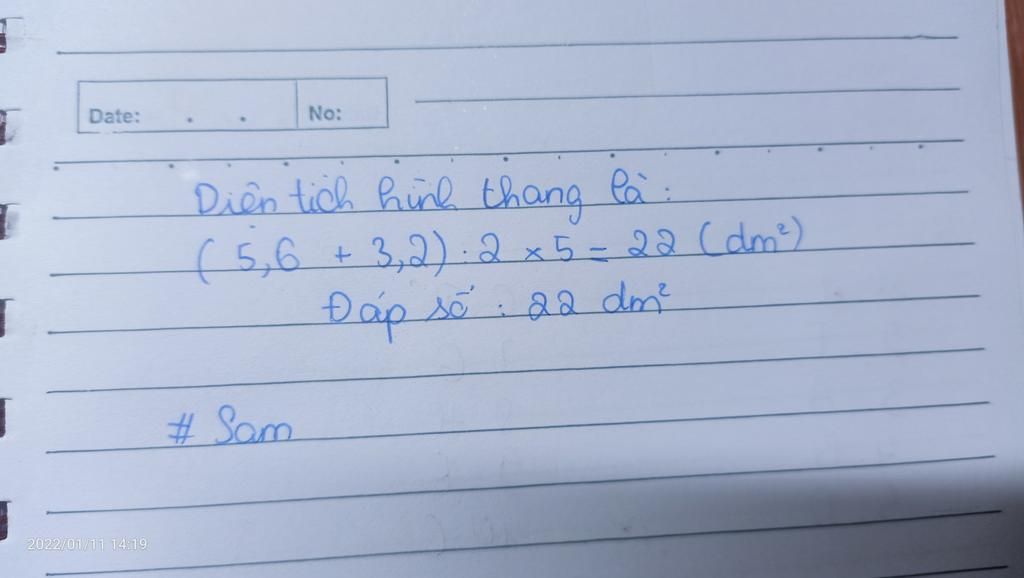 Date: . . No:
Diện tích hình thang là:
( 5,6 + 3,2) : 2 x 5 = 22 (dm²)
Đáp số : 22 dm²
# Sam
2022/01/11 14:19